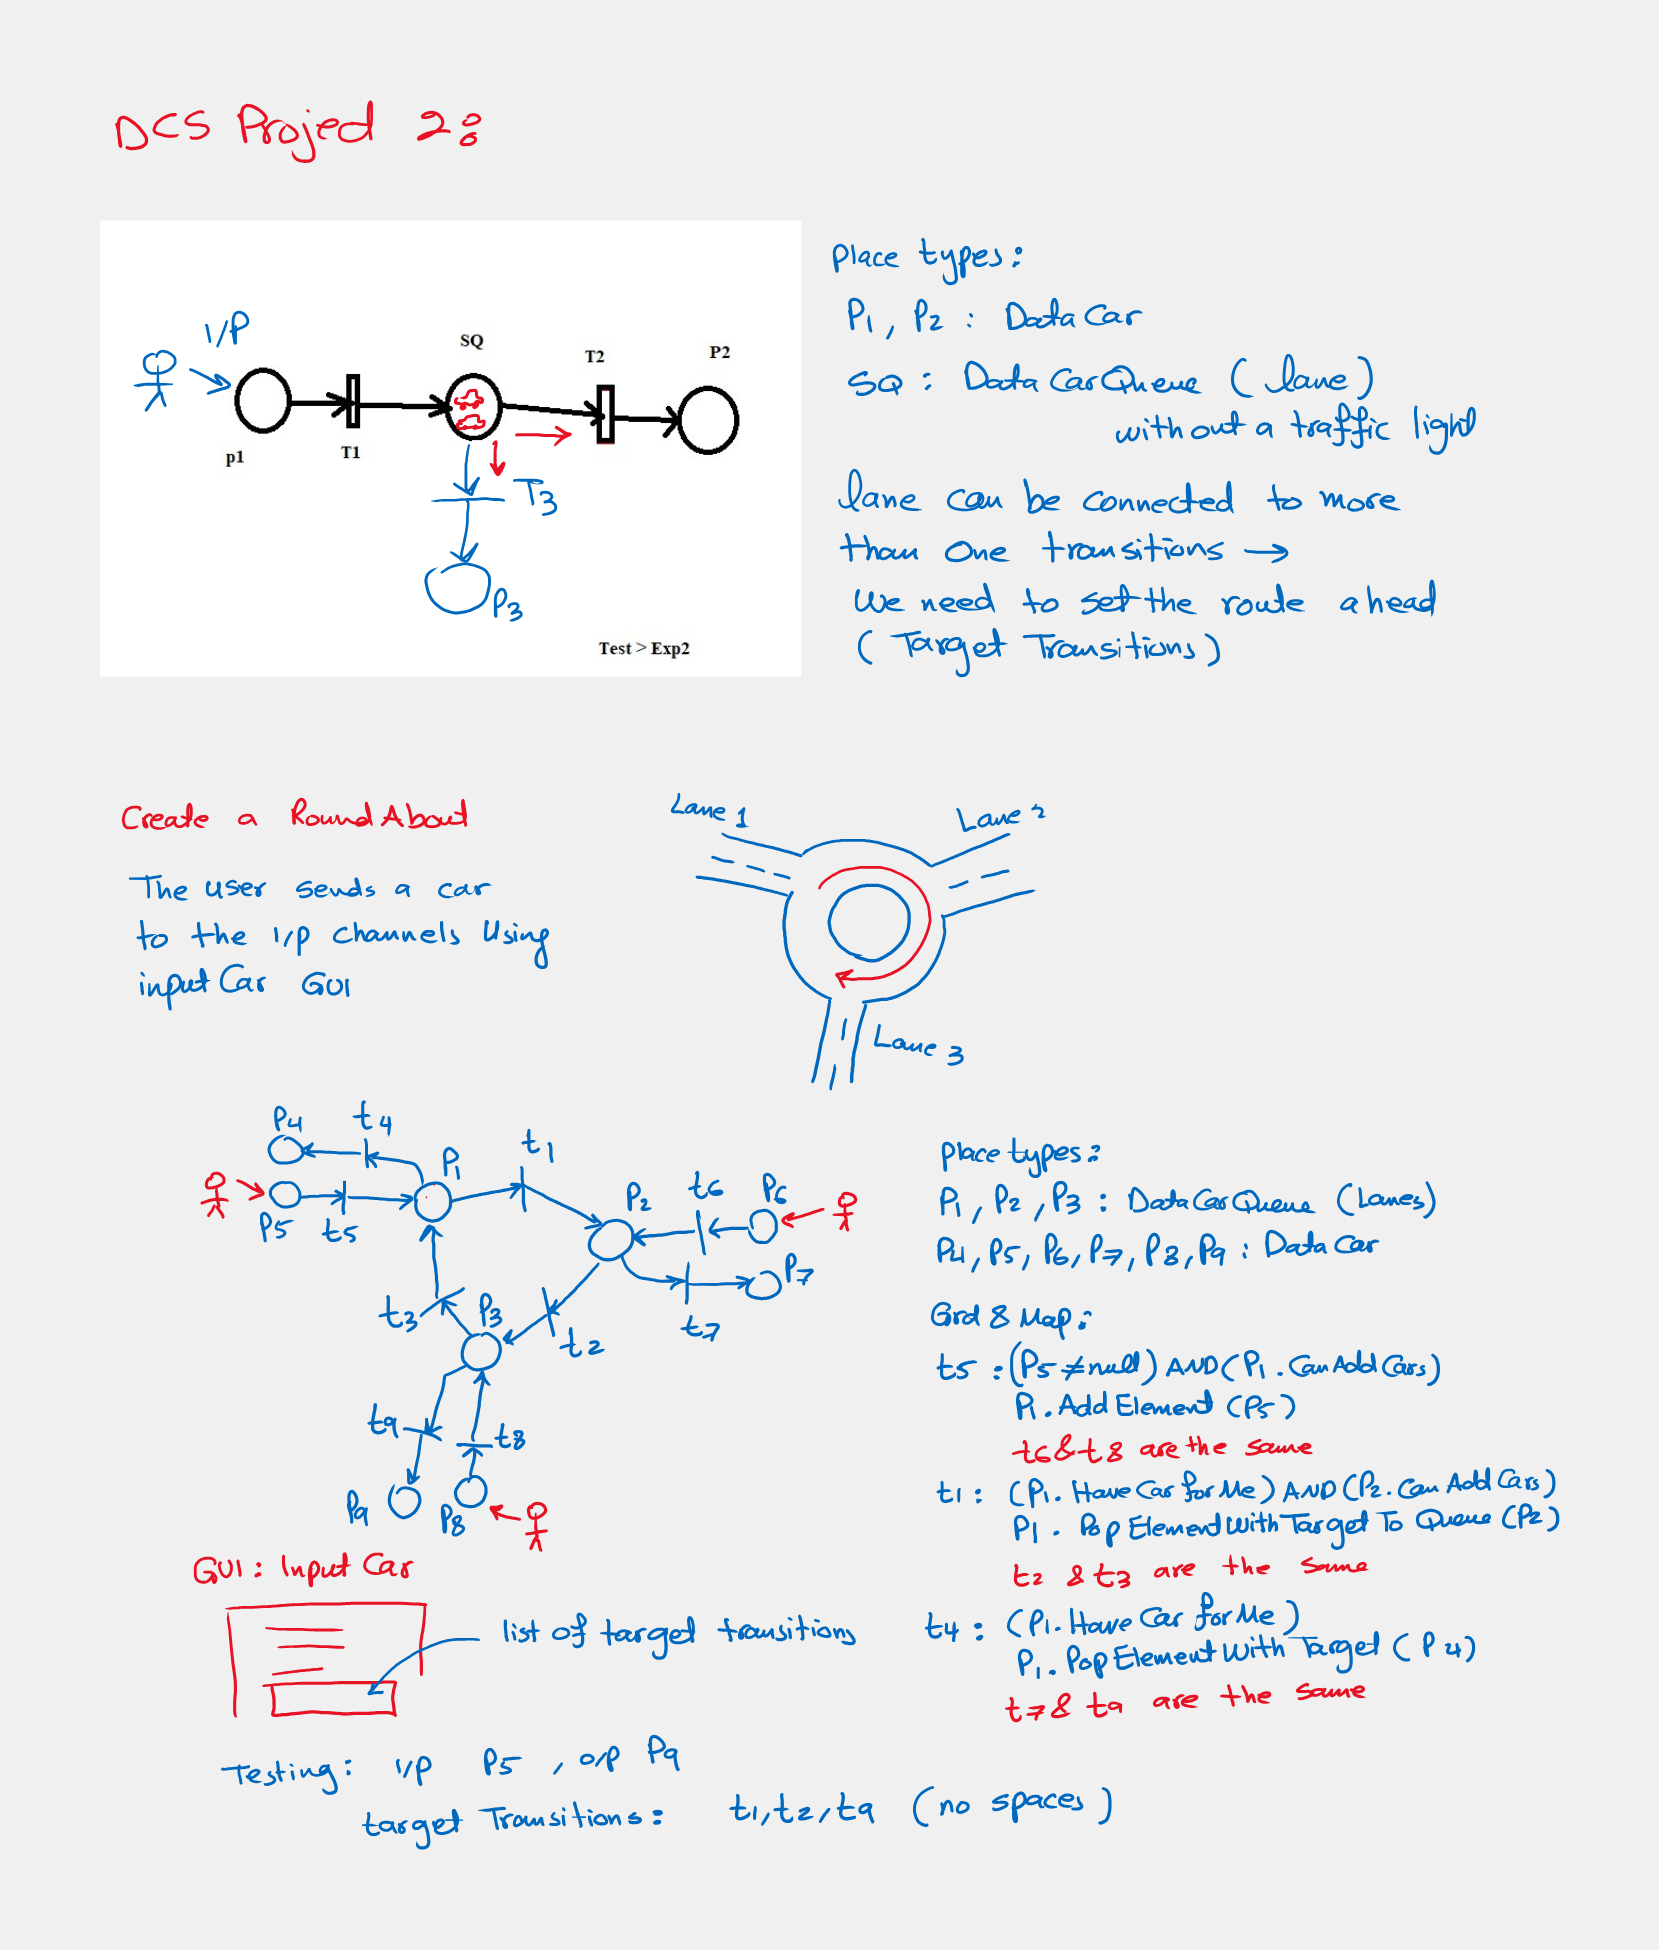 DCS Projed 2:
I/P
SQ
T2
P2
p1
T1
T3
P3
Test > Exp2
Place types:
P1, P2 : DataCar
SQ : DataCarQueue (lane)
without a traffic light
lane can be connected to more
than one transitions →
We need to set the route ahead
(Target Transitions)
Create a RoundAbout
The user sends a car
to the I/p channels Using
inputCar GUI
Lane 1
Lane 2
Lane 3
P4
t4
P1
t1
P5
t5
P2
t6
P6
P7
t7
t3
P3
t2
t9
t8
P9
P8
Place types:
P1, P2, P3 : DataCarQueue (Lanes)
P4, P5, P6, P7, P8, P9 : DataCar
Grd & Map:
t5 : (P5 ≠ null) AND (P1.CanAddCars)
P1.AddElement (P5)
t6 & t8 are the same
t1 : (P1.HaveCarforMe) AND (P2.CanAddCars)
P1.PopElementWithTargetToQueue (P2)
t2 & t3 are the same
t4 : (P1.HaveCarforMe)
P1.PopElementWithTarget (P4)
t7 & t9 are the same
GUI: Input Car
list of target transitions
Testing: I/p P5, o/p P9
target Transitions: t1,t2,t9 (no spaces)